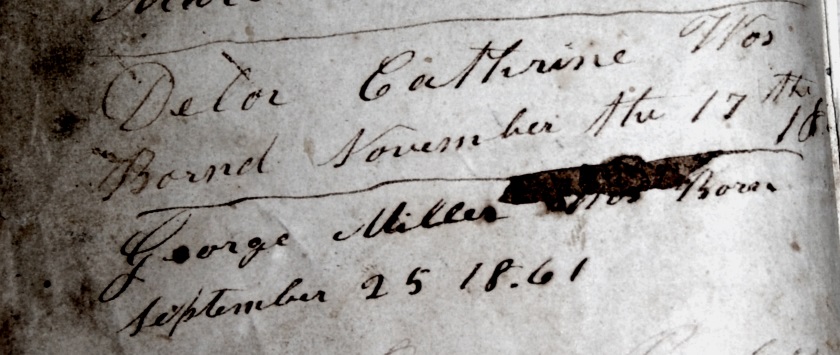 Delor Cathrine Wos
Bornd November the 17 the
18
George Miller Wos Born
September 25 18.61